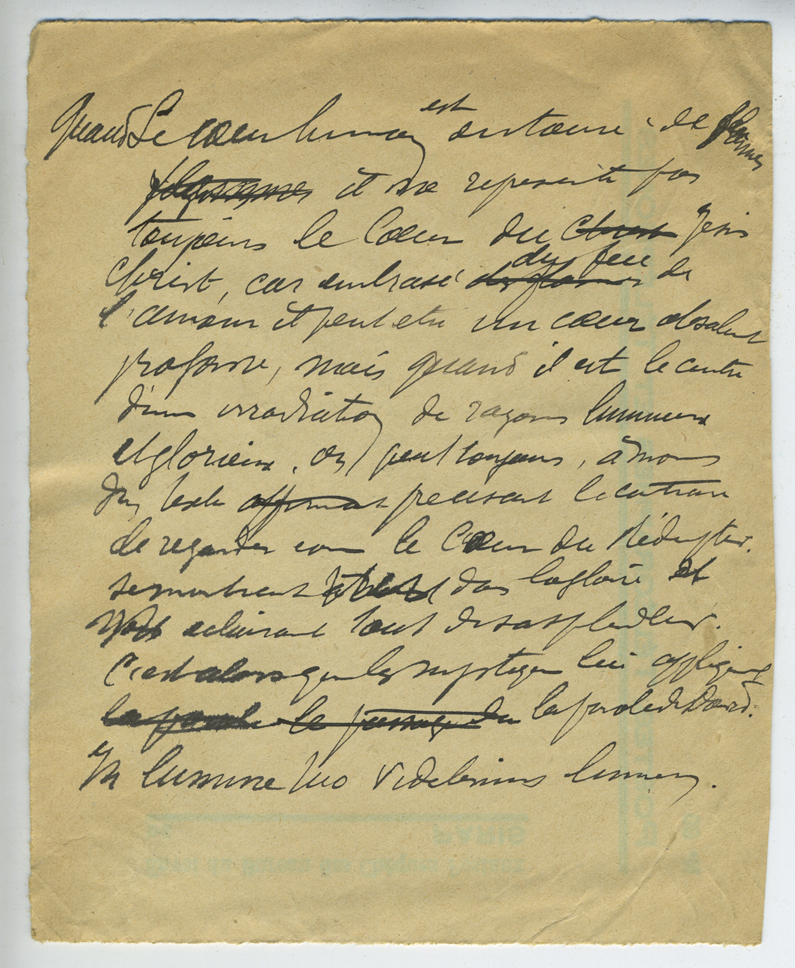 Quand le cœur humain est entouré de flammes
il ne represente pas
toujours le Cœur du Christ Jesus
Christ, car embrasé du feu de
l'amour il peut etre un cœur absolument
profane, mais quand il est le centre
d'une irradiation de rayons lumineux
et glorieux, on peut toujours, à moins
d'un texte affirmant precisant le contraire
de regarder comme le Cœur du Rédempteur.
se montrant dans la gloire et
eclairant tout de sa splendeur.
C'est alors que les mystiques lui appliquent
le passage du la parole de David:
In lumine tuo videbimus lumen.
PARIS